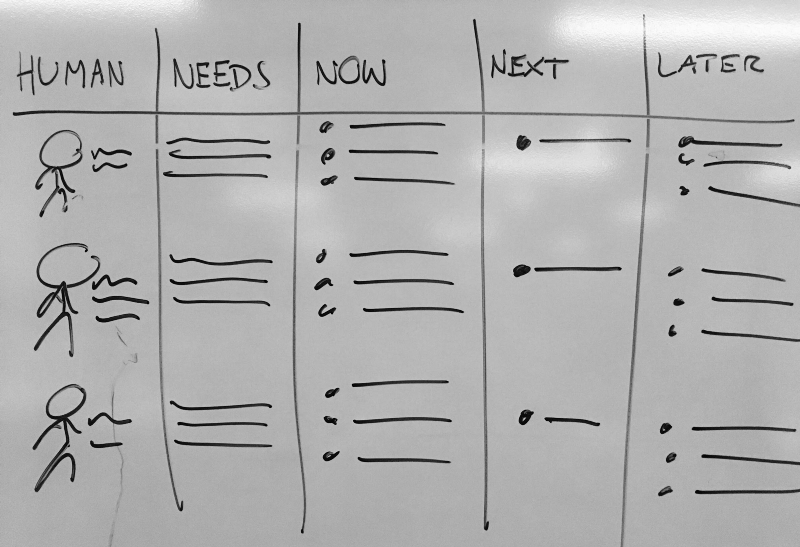 HUMAN NEEDS NOW NEXT LATER